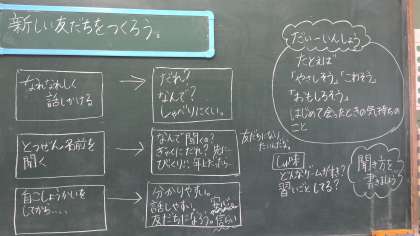 新しい友だちをつくろう。
なれなれしく
話しかける
だれ?
なんで?
しゃべりにくい。
とつぜん名前を
聞く
なんで聞くの?
ぎゃくにだれ?先に
びっくり!!年上だったら…
自こしょうかいを
してから….
分かりやすい。
話しやすい。
友だちになろう。
友だちになり
たいんだな。
だい一いんしょう
たとえば
「やさしそう」「こわそう」
「おもしろそう」
はじめて会ったときの気持ちの
こと
しゅ味
どんなゲームがすき?
習いごとしてる?
聞き方を
書きましょう